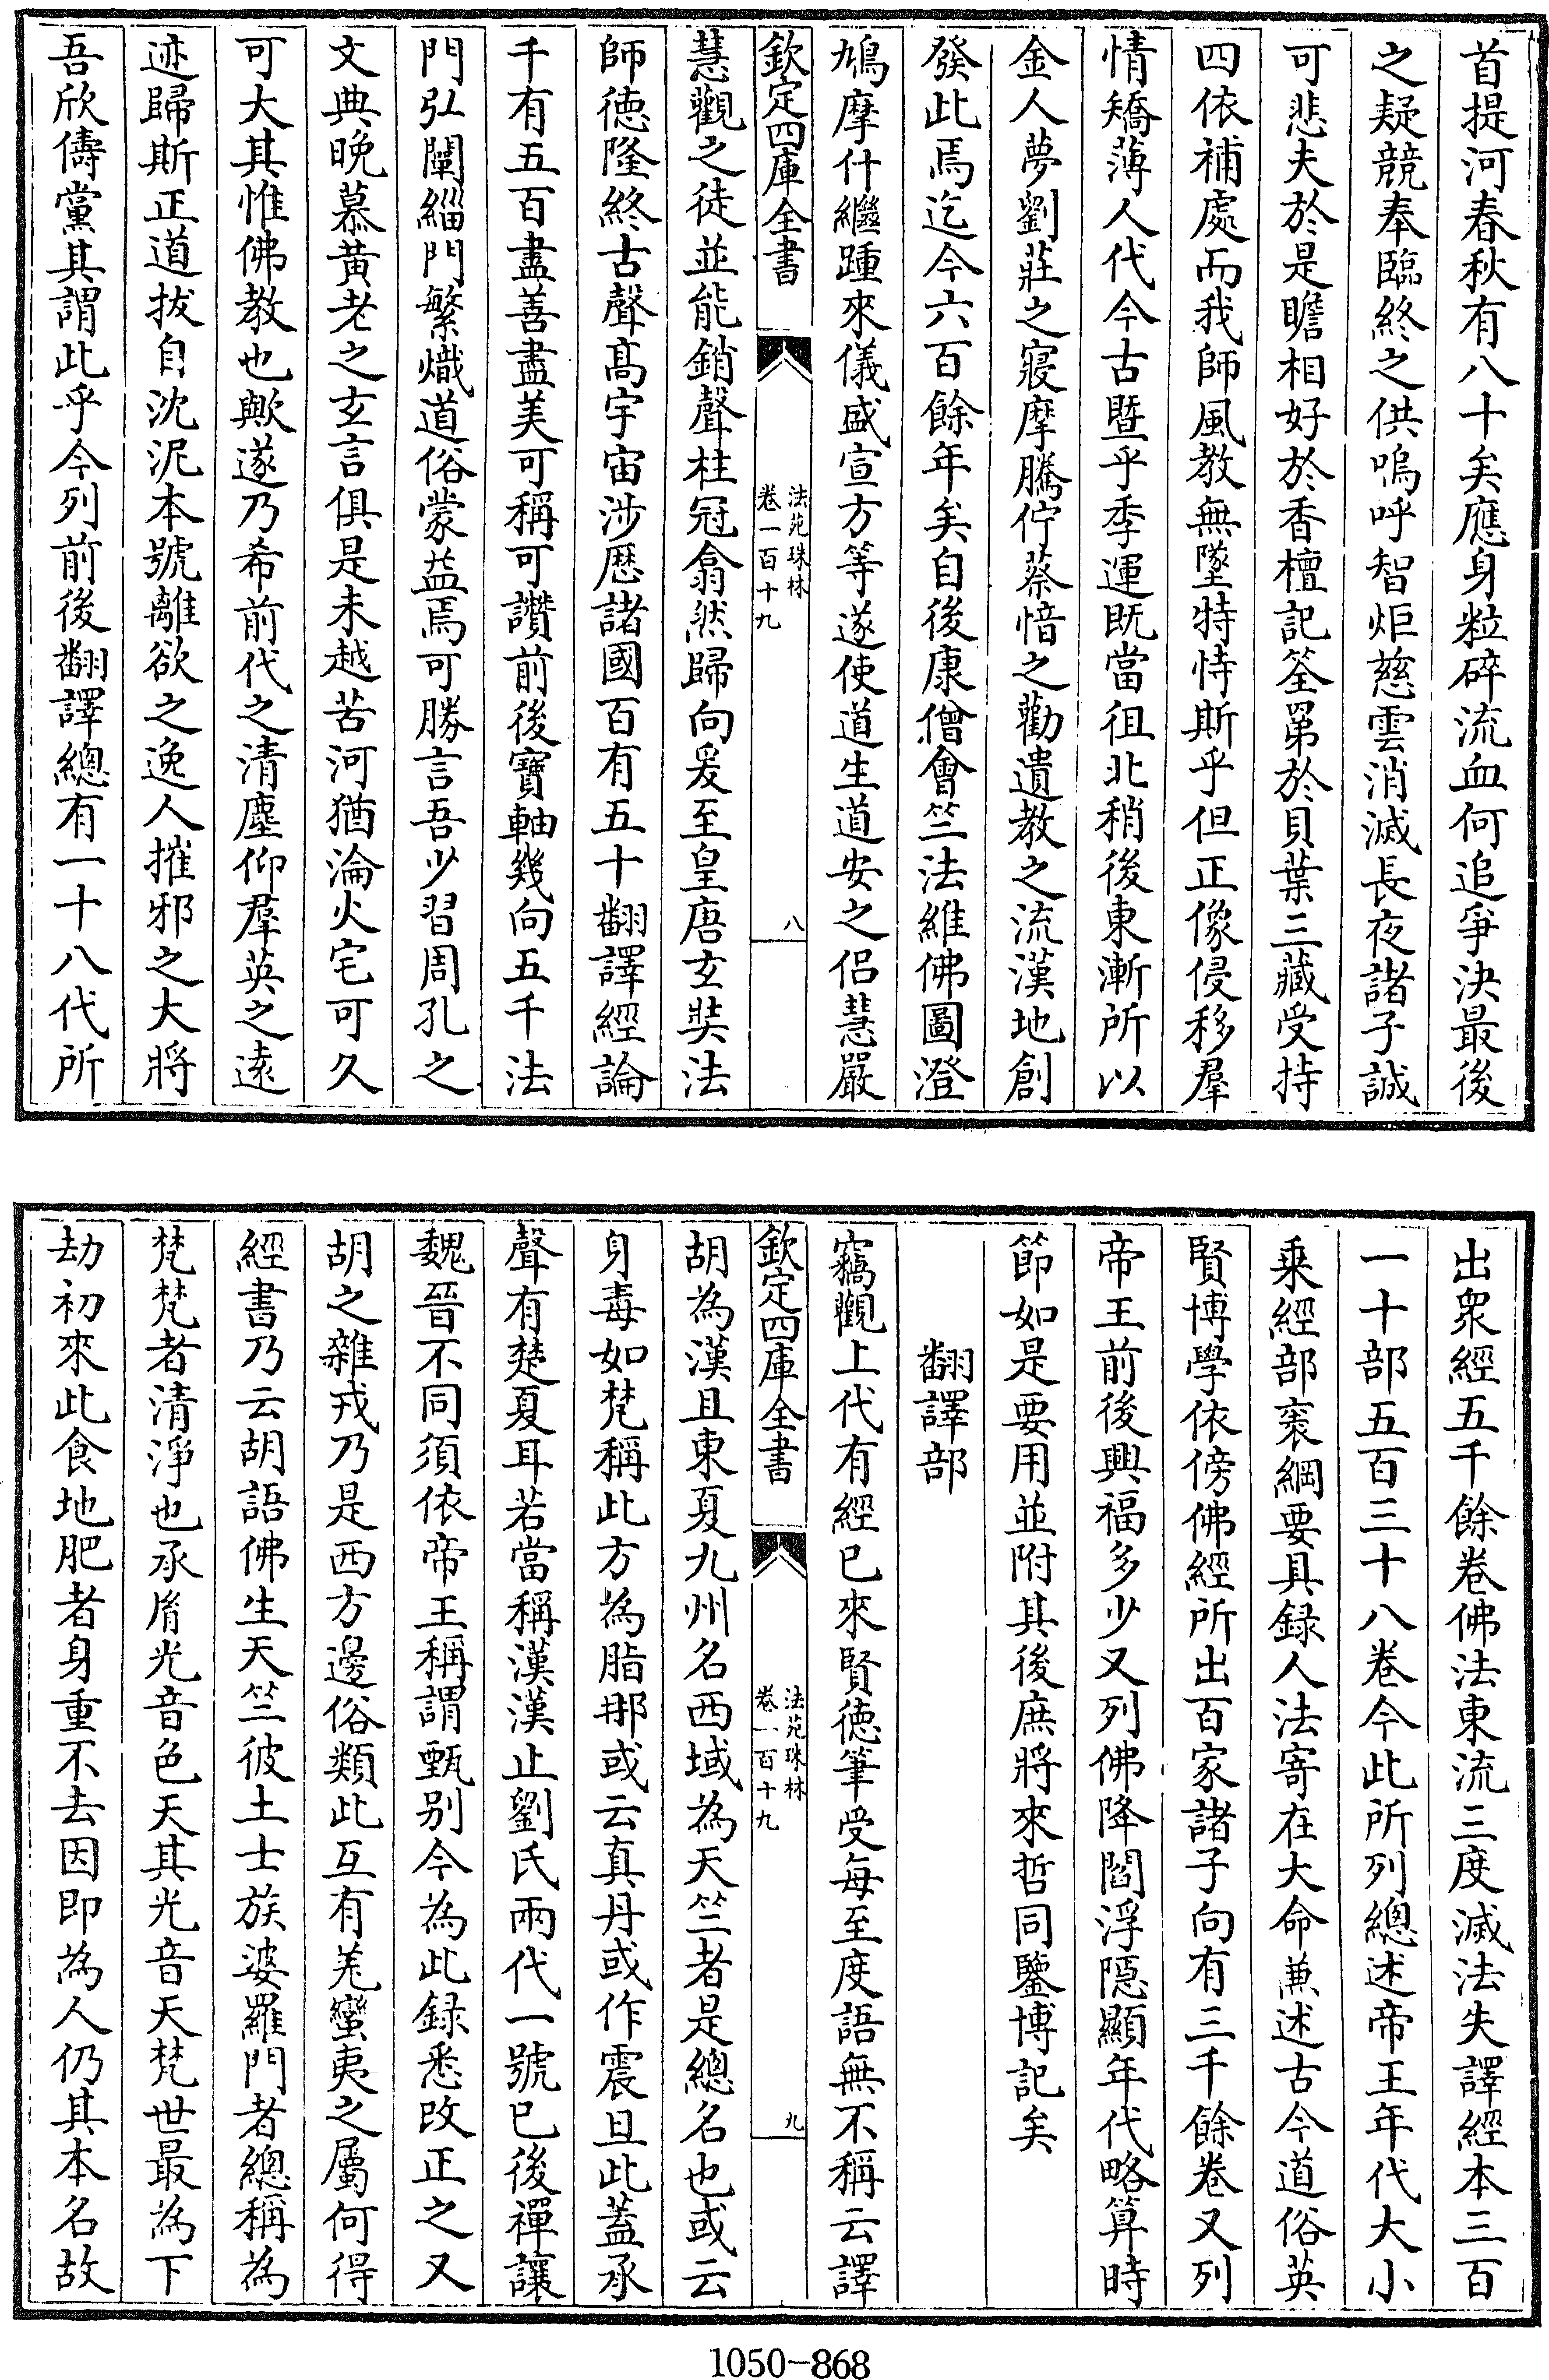 首提河春秋有八十矣應身粒碎流血何追爭決最後
之疑競奉臨終之供嗚呼智炬慈雲消滅長夜諸子誠
可悲夫於是瞻相好於香檀記筌第於貝葉三藏受持
四依補處而我師風教無墜特恃斯乎但正像侵移羣
情矯薄人代今古暨乎季運既當徂北稍後東漸所以
金人夢劉莊之寢摩騰佇蔡愔之勸遺教之流漢地創
發此焉迄今六百餘年矣自後康僧會竺法維佛圖澄
鳩摩什繼踵來儀盛宣方等遂使道生道安之侶慧嚴
欽定四庫全書
法苑珠林
卷一百十九
八
慧觀之徒並能銷聲柱冠翕然歸向爰至皇唐玄奘法
師徳隆終古聲髙宇宙涉歴諸國百有五十翻譯經論
千有五百盡善盡美可稱可讚前後寶軸幾向五千法
門弘闡緇門繁熾道俗蒙益焉可勝言吾少習周孔之
文典晚慕黄老之玄言俱是未越苦河猶淪火宅可久
可大其惟佛教也歟遂乃希前代之清塵仰羣英之逺
迹歸斯正道拔自沈泥本號離欲之逸人摧邪之大將
吾欣儔黨其謂此乎今列前後翻譯總有一十八代所
出衆經五千餘卷佛法東流三度滅法失譯經本三百
一十部五百三十八卷今此所列總述帝王年代大小
乘經部袠綱要具録人法寄在大命兼述古今道俗英
賢博學依傍佛經所出百家諸子向有三千餘卷又列
帝王前後興福多少又列佛降閻浮隠顯年代略算時
節如是要用並附其後庶將來哲同鑒博記矣
翻譯部
竊觀上代有經已來賢徳筆受每至度語無不稱云譯
欽定四庫全書
法苑珠林
卷一百十九
九
胡為漢且東夏九州名西域為天竺者是總名也或云
身毒如梵稱此方為脂那或云真丹或作震旦此蓋承
聲有楚夏耳若當稱漢漢止劉氏兩代一號已後禪讓
魏晉不同須依帝王稱謂甄别今為此録悉改正之又
胡之雜戎乃是西方邊俗類此互有羌蠻夷之屬何得
經書乃云胡語佛生天竺彼土士族婆羅門者總稱為
梵梵者清淨也承𦙍光音色天其光音天梵世最為下
劫初來此食地肥者身重不去因即為人仍其本名故
1050-868